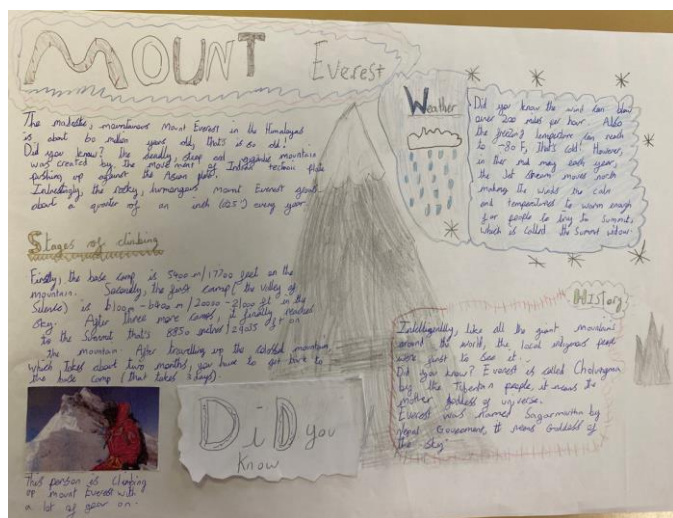 MOUNT Everest
The madestic, mountainous Mount Everest in the Himalayas
is about 60 million years old, that's is so old!
Did you know? the deadly, steep and majestic mountain
was created by the movement of Indian tectonic plate
pushing up against the Asian plate.
Interestingly, the rocky, humangous mount Everest grows
about a quarter of an inch (0.25") every year.
Stages of climbing
Firstly, the base camp is 5400 m/17700 feet on the
mountain. Secondly, the first camp (the valley of
Silence) is 6100m - 6400 m/20000 - 21000 ft in the
sky. After three more camps, it finally reached
to the Summit that's 8850 meter/29035 ft on
the mountain. After travelling up the colossal mountain,
which takes about two months, you have to get back to
the base camp (that takes days).
This person is climbing
up mount Everest with
a lot of gear on.
DiD you
Know
Weather
Did you know the wind can blow
over 200 miles per hour. Also
the freezing temperature can reach
to -80 F, That's cold! However,
in the mid may each year,
the jet stream moves north
making the winds the calm
and temperatures to warm enough
for people to try to Summit,
which is called the Summit window.
History
Intelligently, like all the giant mountains
around the world, the local indigenous people
were first to see it.
Did you know? Everest is called Cholungma
by the Tibetan people, it means the
mother Goddess of universe.
Everest was named Sagarmatha by
Nepal Government, It means Goddess of
the sky.